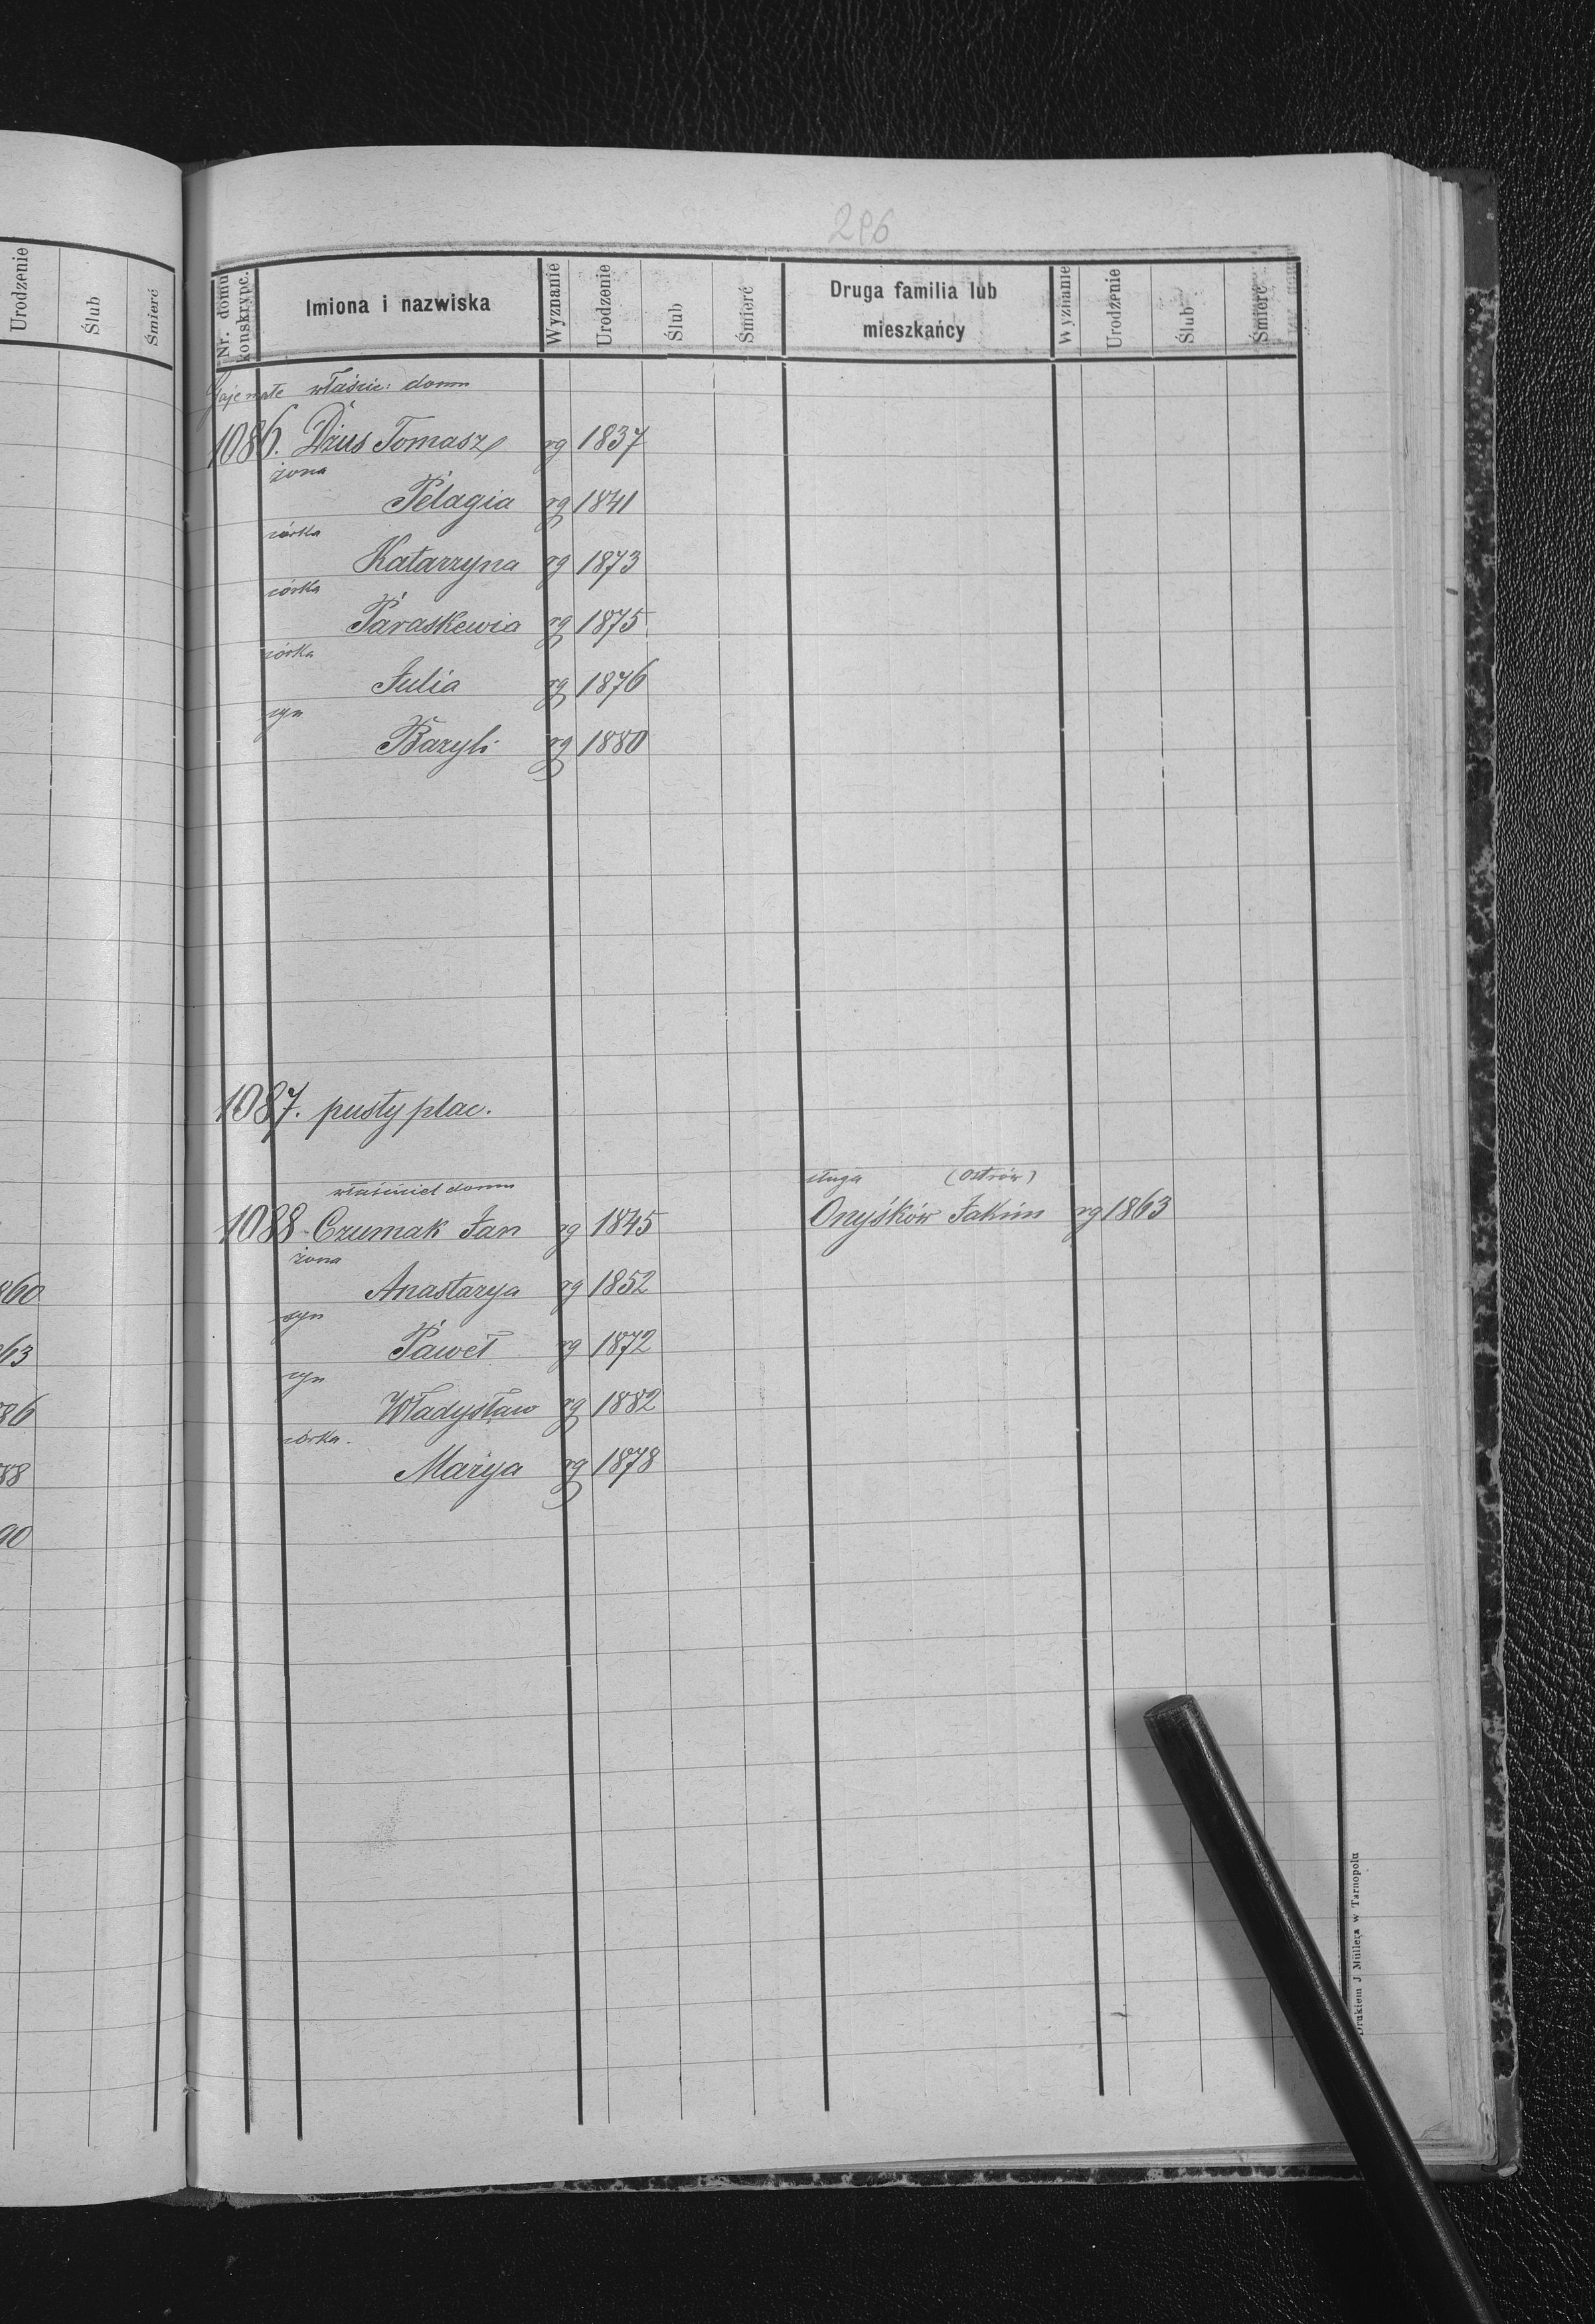 296
Urodzenie Ślub Śmierć
Nr. domu konskrypc. Imiona i nazwiska Wyznanie Urodzenie Ślub Śmierć Druga familia lub mieszkańcy Wyznanie Urodzenie Ślub Śmierć
Gaje małe właście: domu
1086. Dżus Tomasz rg 1837
żona
Pelagia rg 1841
córka
Katarzyna rg 1873
córka
Paraskewia rg 1875
córka
Julia rg 1876
syn
Bazyli rg 1880
1087. pusty plac.
właściciel domu sługa (Ostrów)
1088 Czumak Jan rg 1845 Onyśków Jakim rg 1863
żona
Anastazya rg 1852
syn
Paweł rg 1872
syn
Władysław rg 1882
córka
Marya rg 1878
860
63
86
88
90
Drukiem J. Müllera w Tarnopolu